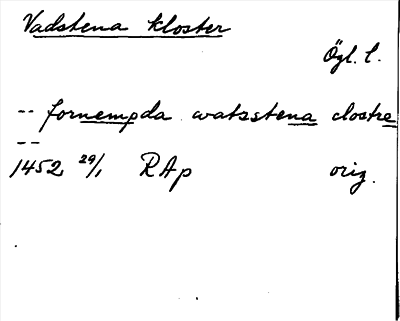 Vadstena kloster
Ögl. l.
-- fornempda watzstena clostre
--
1452 29/1 RAp orig.